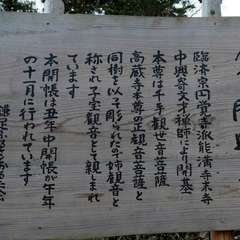 臨済宗円覚寺派能満寺末寺
中興奇文才禅師により開基
本尊は千手観世音菩薩と
高蔵寺本尊の正観音菩薩と
同樹を以て彫られたの姉観音と
称され子宝観音として親しまれ
ています
本開帳は丑年中開帳が午年
の十一月に行われています